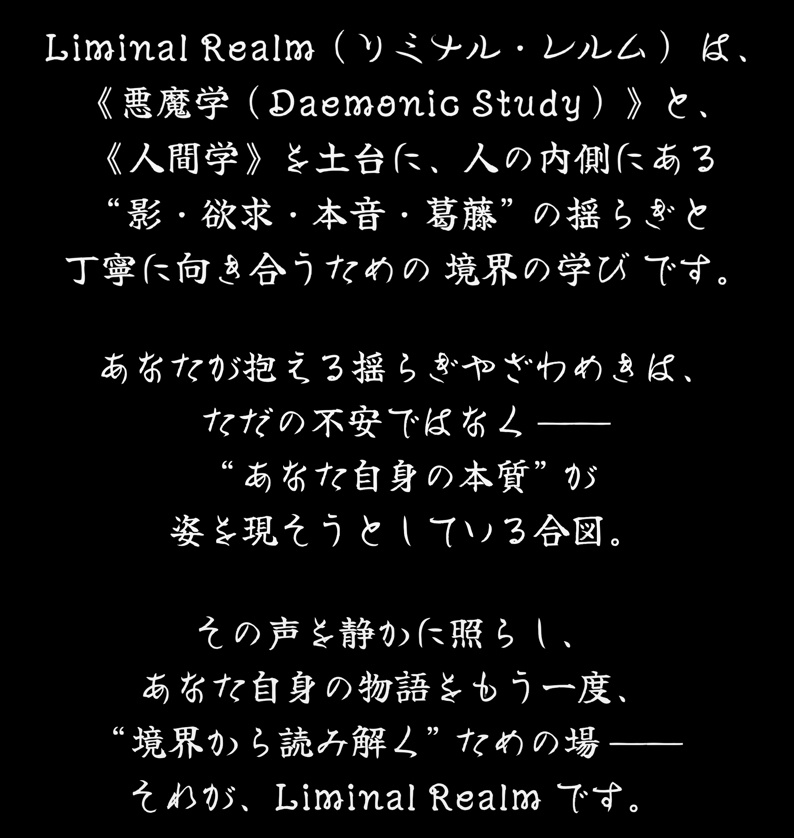 Liminal Realm（リミナル・レルム） は、
《悪魔学（Daemonic Study）》と、
《人間学》を土台に、人の内側にある
“影・欲求・本音・葛藤” の揺らぎと
丁寧に向き合うための 境界の学び です。
あなたが抱える揺らぎやざわめきは、
ただの不安ではなく——
“あなた自身の本質” が
姿を現そうとしている合図。
その声を静かに照らし、
あなた自身の物語をもう一度、
“境界から読み解く” ための場——
それが、Liminal Realm です。